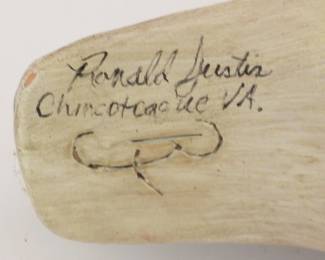 Ronald Justis
Chincoteague VA.